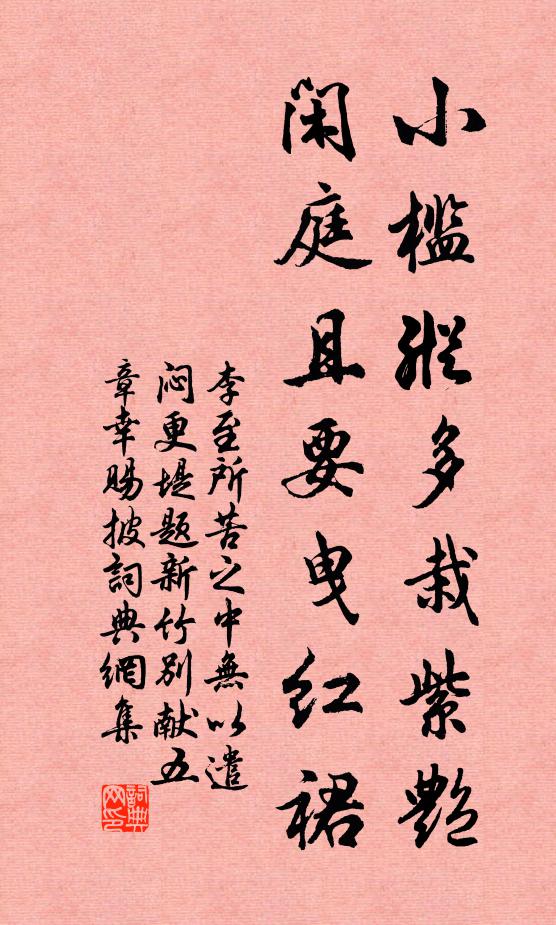 小槛纵多栽紫艳
闲庭且要曳红裙
李至所苦之中無以遣
闷更堤题新竹别献五
章幸赐披詞典網集
詞典网印